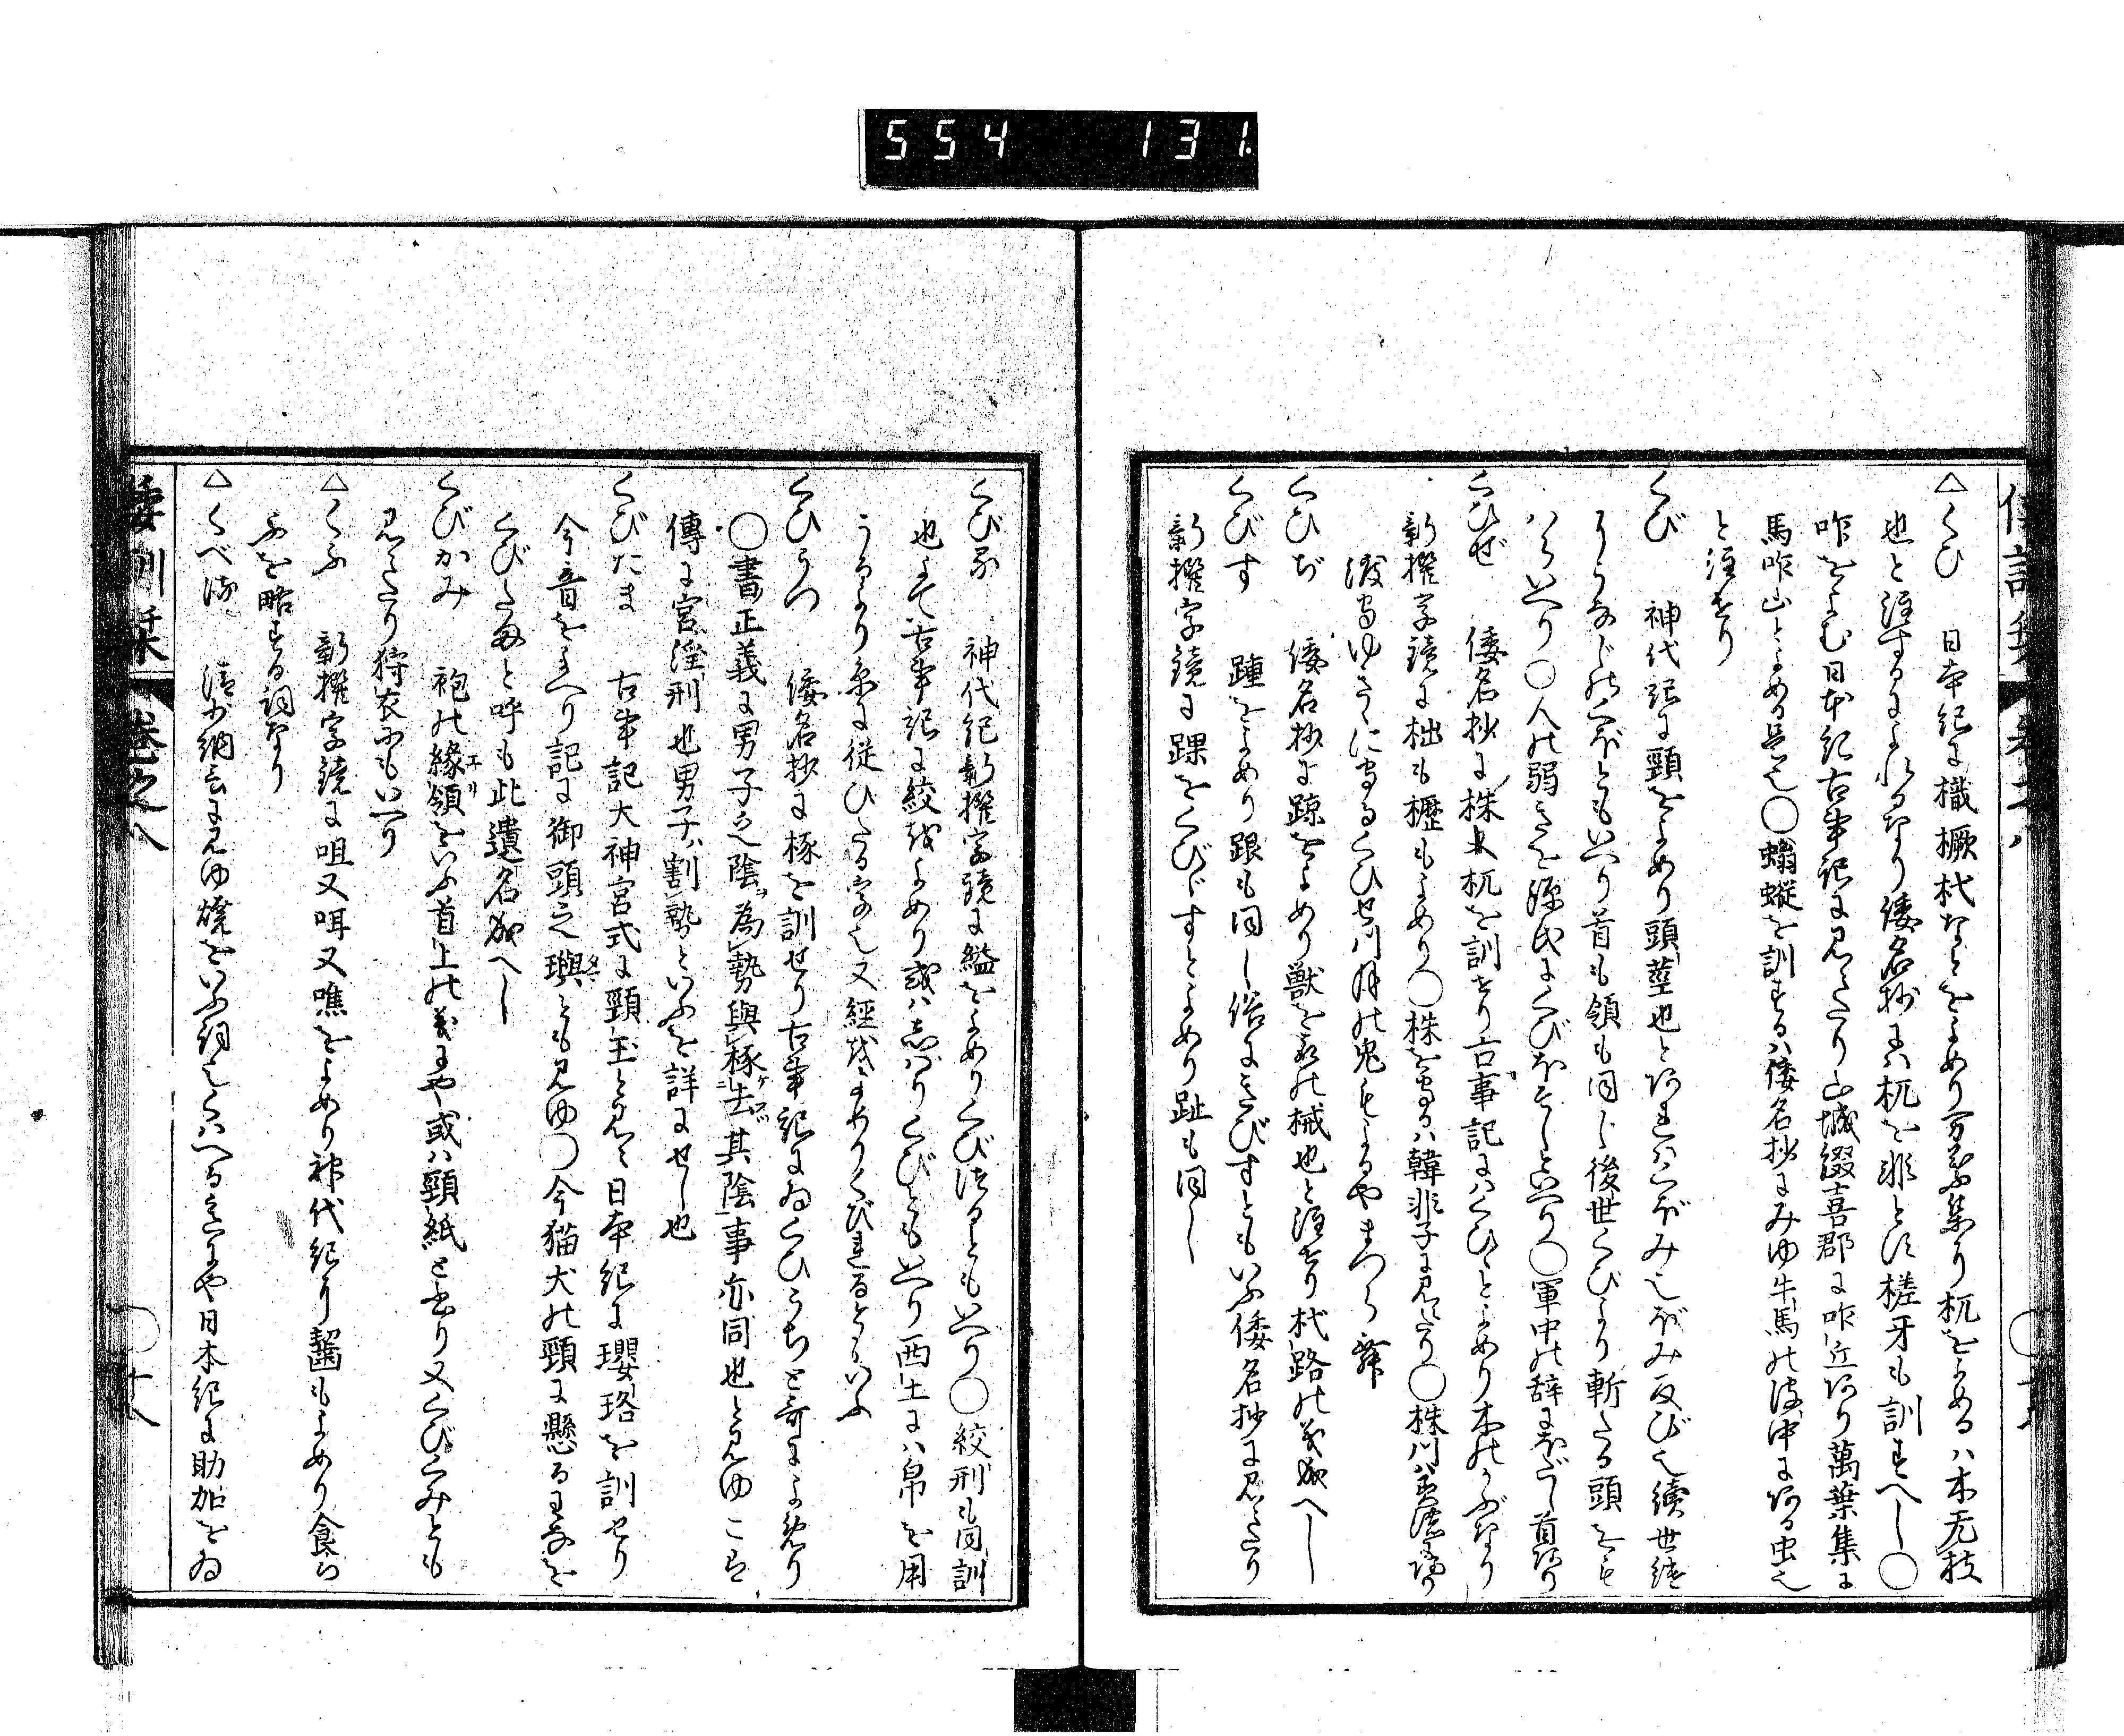 554 131.
△くひ 日本紀に樴橛杙なとをよめり万葉集に杌をよめるハ木无枝
也と注するによれるなり倭名抄にハ杌を非とす槎牙も訓すへし〇
咋をよむ日本紀古事記に見えたり山城綴喜郡に咋丘あり萬葉集に
馬咋山とよめる是也〇螉䗥を訓するハ倭名抄にみゆ牛馬の皮中にある虫也
と注せり
くび 神代紀に頸をよめり頭莖也とあれハくぼみ也ぼみ反び也續世継
にうなじのくぼともいへり首も領も同し後世くびより斬たる頭をも
いへり〇人の弱きを源氏にくびほそしといへり〇軍中の辞に首あり
くひぜ 倭名抄に株杌を訓せり古事記にハくひとよめり木のかぶなり
新撰字鏡に柮も櫪もよめり〇株を守るハ韓非子に見えたり〇株川ハ美濃
渡守ゆきゝに守るくひせ川月の兎もよるやまつらむ
くひぢ 倭名抄に踪をよめり獣を取の械也と注せり杙路の義成へし
くびす 踵をよめり跟も同し俗にきびすともいふ倭名抄に見えたり
新撰字鏡に踝をくびすとよめり趾も同し
くびる 神代紀新撰字鏡に縊をよめりくびつるともいへり〇絞刑も同訓
也とそ古事記に絞をよめり或ハしばりくびともいへり西土にハ帛を用
うるより糸に従ひたる字也又經をよめりくびれるともいふ
くひうつ 倭名抄に椓を訓せり古事記にゐくひうちと哥によめり
〇書正義に男子之陰為勢與椓去其陰事亦同也と見ゆこは
傳に宮淫刑也男子ハ割勢といふを詳にせし也
くびたま 古事記大神宮式に頸玉と見え日本紀に瓔珞を訓せり
今音をよへり記に御頸之璵とも見ゆ〇今猫犬の頸に懸るわなを
くびたまと呼も此遺名成へし
くびかみ 袍の緣領をいふ首上の義にや或ハ頸紙と書り又くびくみとも
見えたり狩衣にもいへり
△くふ 新撰字鏡に咀又咡又噍をよめり神代紀に齧もよめり食ら
ふを略する詞なり
△くべる 清少納言に見ゆ燒をいふ詞也くはへる意にや日本紀に助加をゐ
倭訓栞 巻之八 〇廿八